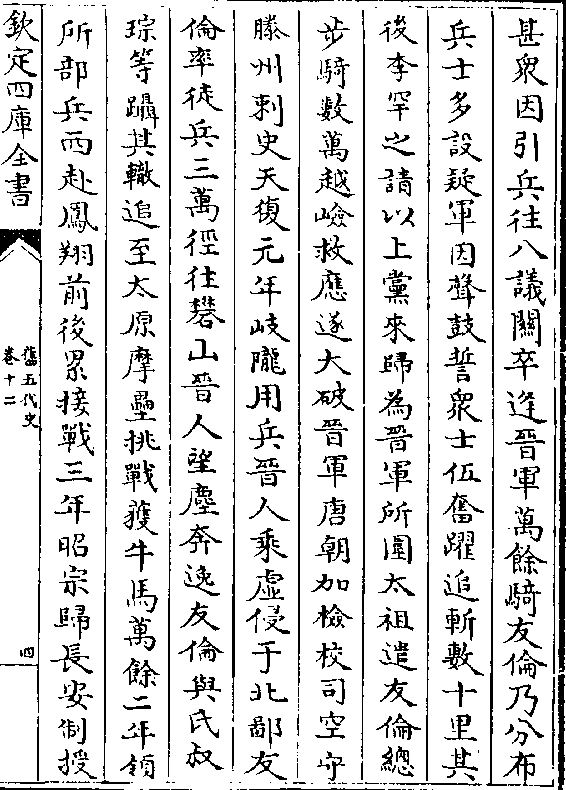 甚衆因引兵往八議關卒逢晉軍萬餘騎友倫乃分布
兵士多設疑軍因聲鼓誓衆士伍奮躍追斬數十里其
後李罕之請以上黨來歸為晉軍所圍太祖遣友倫總
步騎數萬越嶮救應遂大破晉軍唐朝加檢校司空守
滕州刺史天復元年岐隴用兵晉人乘虛侵于北鄙友
倫率徒兵三萬徑往礬山晉人望塵奔逸友倫與氏叔
琮等躡其轍追至太原摩壘挑戰獲牛馬萬餘二年領
所部兵西赴鳳翔前後累接戰三年昭宗歸長安制授
欽定四庫全書
舊五代史
卷十二
四